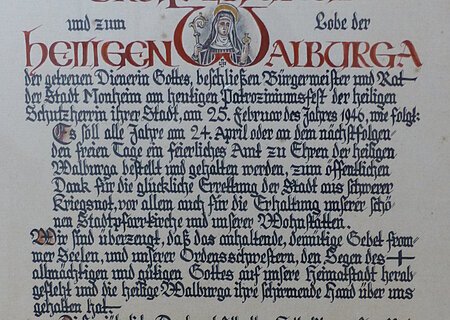 und zum Lobe der
heiligen Walburga
der getreuen Dienerin Gottes, beschließen Bürgermeister und Rat
der Stadt Monheim am heutigen Patroziniumsfest der heiligen
Schutzherrin ihrer Stadt, am 25. Februar des Jahres 1946, wie folgt:
Es soll alle Jahre am 24. April oder an dem nächstfolgen-
den freien Tage ein feierliches Amt zu Ehren der heiligen
Walburga bestellt und gehalten werden, zum öffentlichen
Dank für die glückliche Errettung der Stadt aus schwerer
Kriegsnot, vor allem auch für die Erhaltung unserer schö-
nen Stadtpfarrkirche und unserer Wohnstätten.
Wir sind überzeugt, daß das anhaltende, demütige Gebet from-
mer Seelen, und unserer Ordensschwestern, den Segen des
allmächtigen und gütigen Gottes auf unsere Heimatstadt herab
gefleht und die heilige Walburga ihre schirmende Hand über uns
gehalten hat.